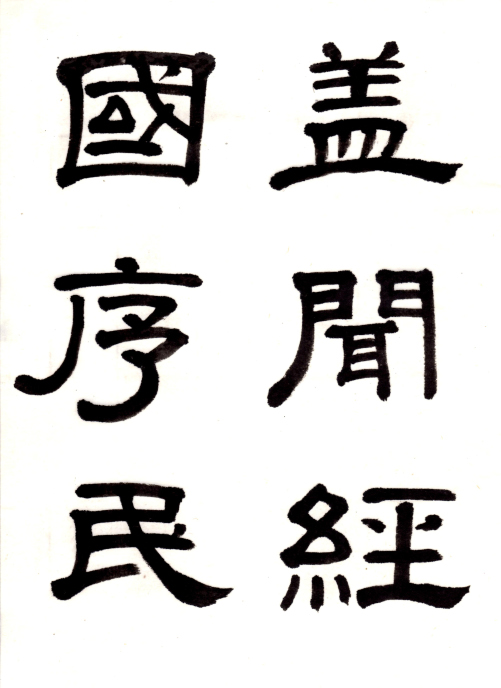 盖聞經
國序民